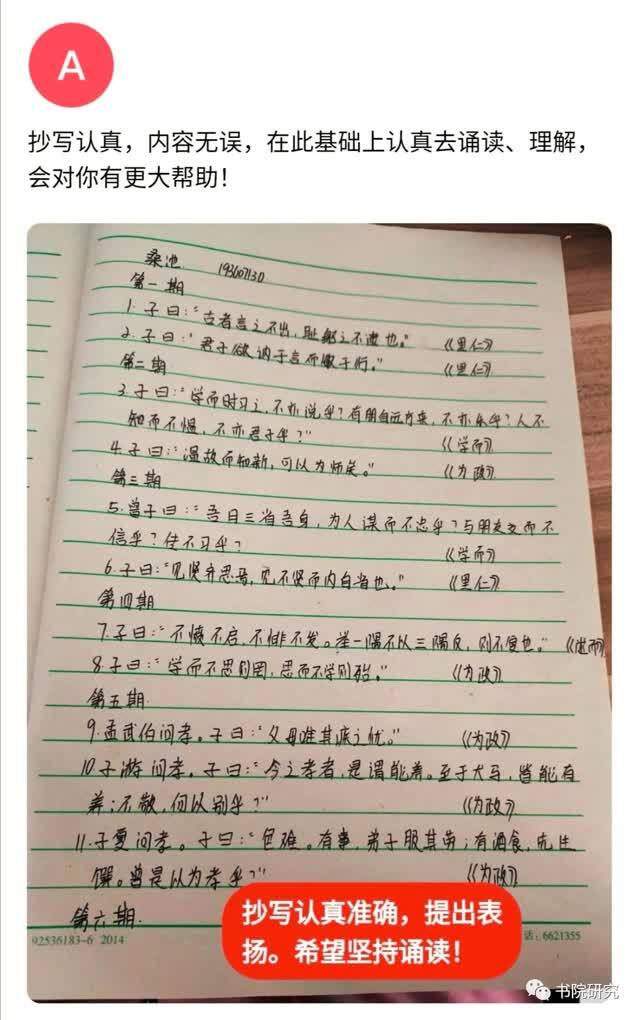 A
抄写认真，内容无误，在此基础上认真去诵读、理解，
会对你有更大帮助！
桑池 193607130
第一期
1. 子曰："古者言之不出，耻躬之不逮也。" 《里仁》
2. 子曰："君子欲讷于言而敏于行。" 《里仁》
第二期
3. 子曰："学而时习之，不亦说乎？有朋自远方来，不亦乐乎？人不
知而不愠，不亦君子乎？" 《学而》
4. 子曰："温故而知新，可以为师矣。" 《为政》
第三期
5. 曾子曰："吾日三省吾身，为人谋而不忠乎？与朋友交而不
信乎？传不习乎？ 《学而》
6. 子曰："见贤齐思焉，见不贤而内自省也。" 《里仁》
第四期
7. 子曰："不愤不启，不悱不发。举一隅不以三隅反，则不复也。" 《述而》
8. 子曰："学而不思则罔，思而不学则殆。" 《为政》
第五期
9. 孟武伯问孝。子曰："父母唯其疾之忧。" 《为政》
10. 子游问孝。子曰："今之孝者，是谓能养。至于犬马，皆能有
养；不敬，何以别乎？" 《为政》
11. 子夏问孝。子曰："色难。有事，弟子服其劳；有酒食，先生
馔。曾是以为孝乎？" 《为政》
第六期
92536183-6 2014
话：6621355
抄写认真准确，提出表
扬。希望坚持诵读！
书院研究